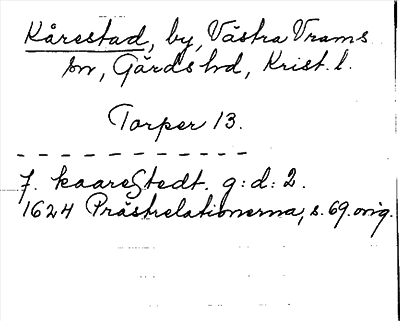 Kårestad, by, Västra Vrams
sn, Gärds hd, Krist. l.
Torper 13.
7. kaareStedt. g:d: 2.
1624 Prästrelationerna, s. 69. orig.